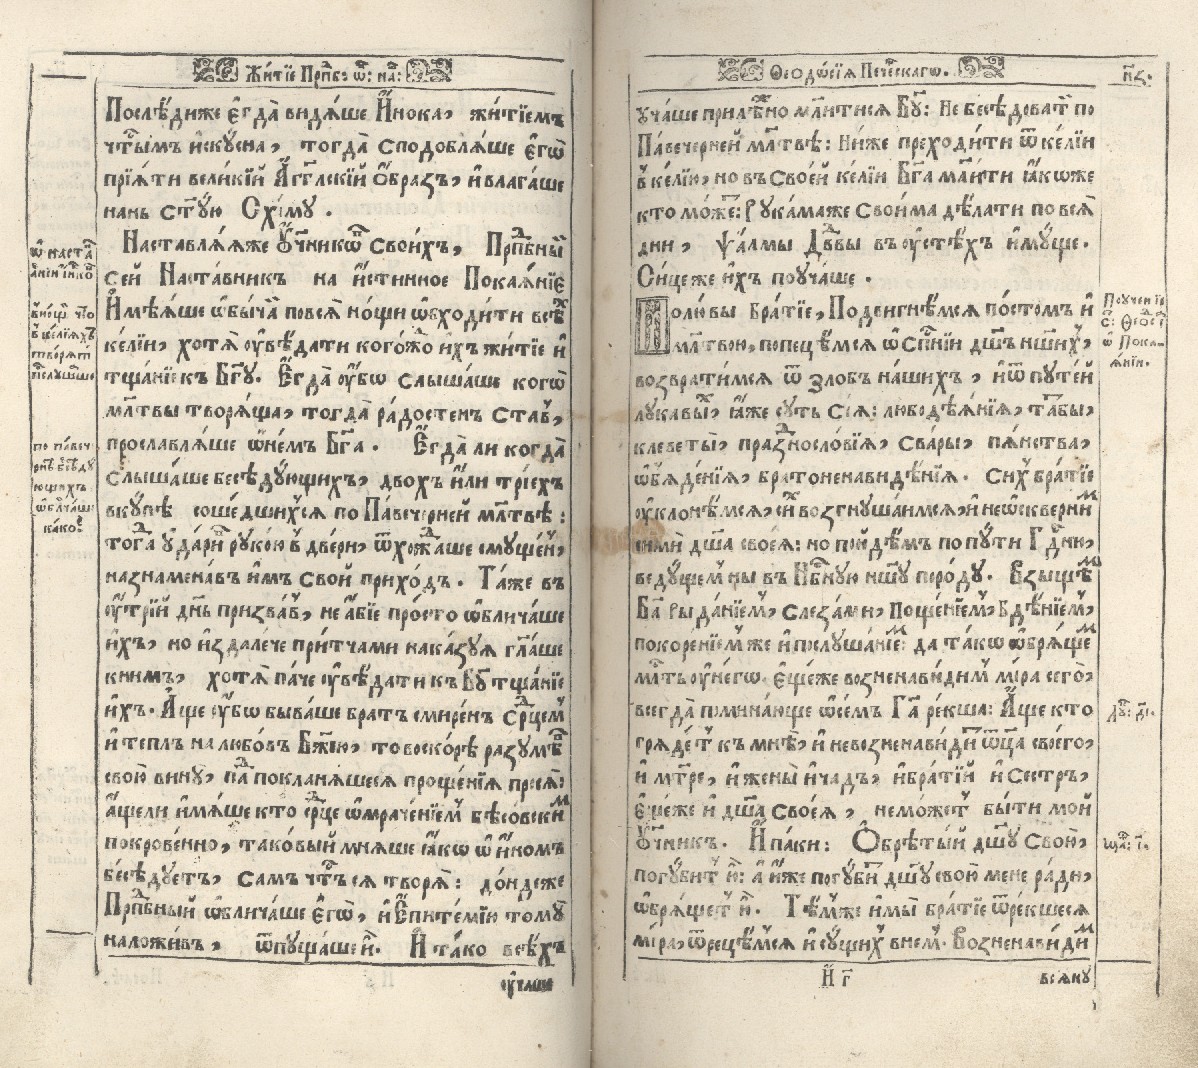 Житїе Прпⷣбъ: ѿц: на:
Послѣ́дижe є҆гда̀ видѧ́ше И҆́нока, житїемъ
чтⷭ҇ымъ и҆скꙋ́сна, тогда̀ сподоблѧ́ше є҆гѡ̀
прїѧ́ти вели́кїй А҆́гг҃лскїй О҆́бразъ, и҆ влага́ше
нань ст҃ꙋю Схі́мꙋ .
Наставлѧ́ѧже Оу҆ч҃никѡⷡ свои́хъ, Прпⷣбный
сей Наста́вникъ на и҆́стинное Покаѧ́нїе
И҆мѣ́ѧше ѡ҆бы́чаⷨ повсѧ̀ но́щи ѡ҆бходи́ти всѣ̀
ке́лїи, хотѧ̀ оу҆вѣ́дати кого́жⷣо и҆хъ житїе и҆
тща́нїе къ Бг҃ꙋ. Є҆гда̀ оу҆́бѡ слы́шаше когѡ̀
мл҃твы творѧ́ща, тогда̀ ра́достенъ ста́въ,
прославлѧ́ше ѡ҆ не́мъ Бг҃а . Є҆гда́ ли когда̀
слы́шаше бесѣ́дꙋющихъ, двохъ и҆лѝ трїе́хъ
вкꙋ́пѣ соше́дшихсѧ по Па́вечерней мл҃твѣ:
тогⷣа оу҆да́ривъ рꙋко́ю в две́ри, ѿхожⷣа́ше смꙋще́нъ,
назнамена́въ и҆́мъ свой прихо́дъ. Та́же въ
оу҆́трїй дн҃ь призва́въ, не а҆́бїе про́сто ѡ҆блича́ше
и҆́хъ, но и҆здале́че при́тчами нака́зꙋѧ гл҃аше
къ ни́мъ, хотѧ̀ па́че оу҆вѣ́дати къ Бг҃ꙋ тща́нїе
и҆́хъ. А҆́ще оу҆́бѡ быва́ше бра́тъ смире́нъ ср҃цемъ
и҆ те́плъ на любо́вь Бж҃їю, то вско́рѣ разꙋмѣ́въ
свою̀ винꙋ̀, паⷣ покланѧ́шесѧ проще́нїѧ просѧ̀:
а҆́щели и҆мѧ́ше кто ср҃це ѡ҆мраче́нїемъ бѣсо́вскиⷨ
покрове́нно, тако́вый мнѧ́ше ꙗ҆́кѡ ѡ҆ и҆но́мъ
бесѣ́дꙋетъ, самъ чтⷭ҇ъ сѧ творѧ̀: до́ндеже
Прпⷣбный ѡ҆блича́ше є҆гѡ̀, и҆ Є҆пите́мїю томꙋ̀
наложи́въ, ѿпꙋща́ше и҆̀. И҆ та́ко всѣ́хъ
оу҆чаше
ѡ҆ наста
по паве́ч
какѡ
Ѳеодѡ́сїѧ Пече́рскагѡ.
н҃з.
оу҆ча́ше прилѣ́жно мл҃итисѧ Бг҃ꙋ: не бесѣ́довати по
Па́вечерней мл҃твѣ: ни́же преходи́ти ѿ ке́лїи
в ке́лїю, но въ свое́й ке́лїи Бг҃а мл҃ити ꙗ҆́коже
кто мо́жеⷮ: Рꙋка́маже свои́ма дѣ́лати по всѧ̀
дни, Ѱалмы̀ Дв҃ды въ оу҆стѣ́хъ и҆мꙋ́ще.
Си́цеже и҆хъ поꙋча́ше .
Молю́ вы бра́тїе, Подви́гнѣмсѧ по́стомъ и҆
мл҃твою, попеце́мсѧ ѡ҆ сп҃сѣнїи дш҃ъ на́шихъ,
возврати́мсѧ ѿ злобъ на́шихъ, и҆ ѿ пꙋте́й
лꙋка́выхъ, ꙗ҆́же сꙋть сїѧ̀: любодѣѧ́нїѧ, татьбы̀,
клеветы̀, празⷣносло́вїѧ, сва́ры, пїѧ́нства,
ѡ҆б̾ѧде́нїѧ, братоненави́дѣнїѧ. Сих бра́тїе
оу҆клони́мсѧ, си́хъ возгнꙋша́имсѧ, и҆ не ѡ҆скверниⷨ
си́ми дш҃а своеѧ̀: но по́йдѣмъ по пꙋтѝ Гдⷭ҇ню,
ведꙋ́щемъ ны въ Нб҃нꙋю на́шꙋ поро́дꙋ. Взы́щѣⷨ
Бг҃а рыда́нїемъ, слеза́ми, поще́нїемъ, бдѣ́нїемъ,
покоре́нїемъ же и҆ послꙋша́нїеⷨ: да та́кѡ ѡ҆брѧ́щеⷨ
млⷭ҇ть оу҆ негѡ̀. Є҆ще́же возненави́димъ ми́ра сегѡ̀,
всегда̀ помина́юще ѡ҆ се́мъ Гдⷭ҇а ре́кша: А҆́ще кто
грѧде́тъ къ мнѣ̀, и҆ не возненави́дитъ ѿц҃а своегѡ̀,
и҆ мт҃ре, и҆ жены̀ и҆ ча́дъ, и҆ бра́тїй и҆ се́стръ,
є҆ще́же и҆ дш҃а своеѧ̀, не мо́жетъ бы́ти мой
Оу҆ч҃никъ. И҆ па́ки: Ѡ҆брѣты́й дш҃ꙋ свою̀,
погꙋби́тъ ю҆̀: а҆ и҆́же погꙋби́тъ дш҃ꙋ свою̀ мене ра́ди,
ѡ҆брѧ́щетъ ю҆̀. Тѣ́мже и҆ мы̀ бра́тїе ѿре́кшесѧ
ми́ра, ѿрече́мсѧ и҆ сꙋ́щихъ в не́мъ. Возненави́диⷨ
И҆ г҃
всѧкꙋ
Поꙋче́нїе
ст҃: Ѳеоⷣсї
ѡ҆ Пока-
ѧнїи.